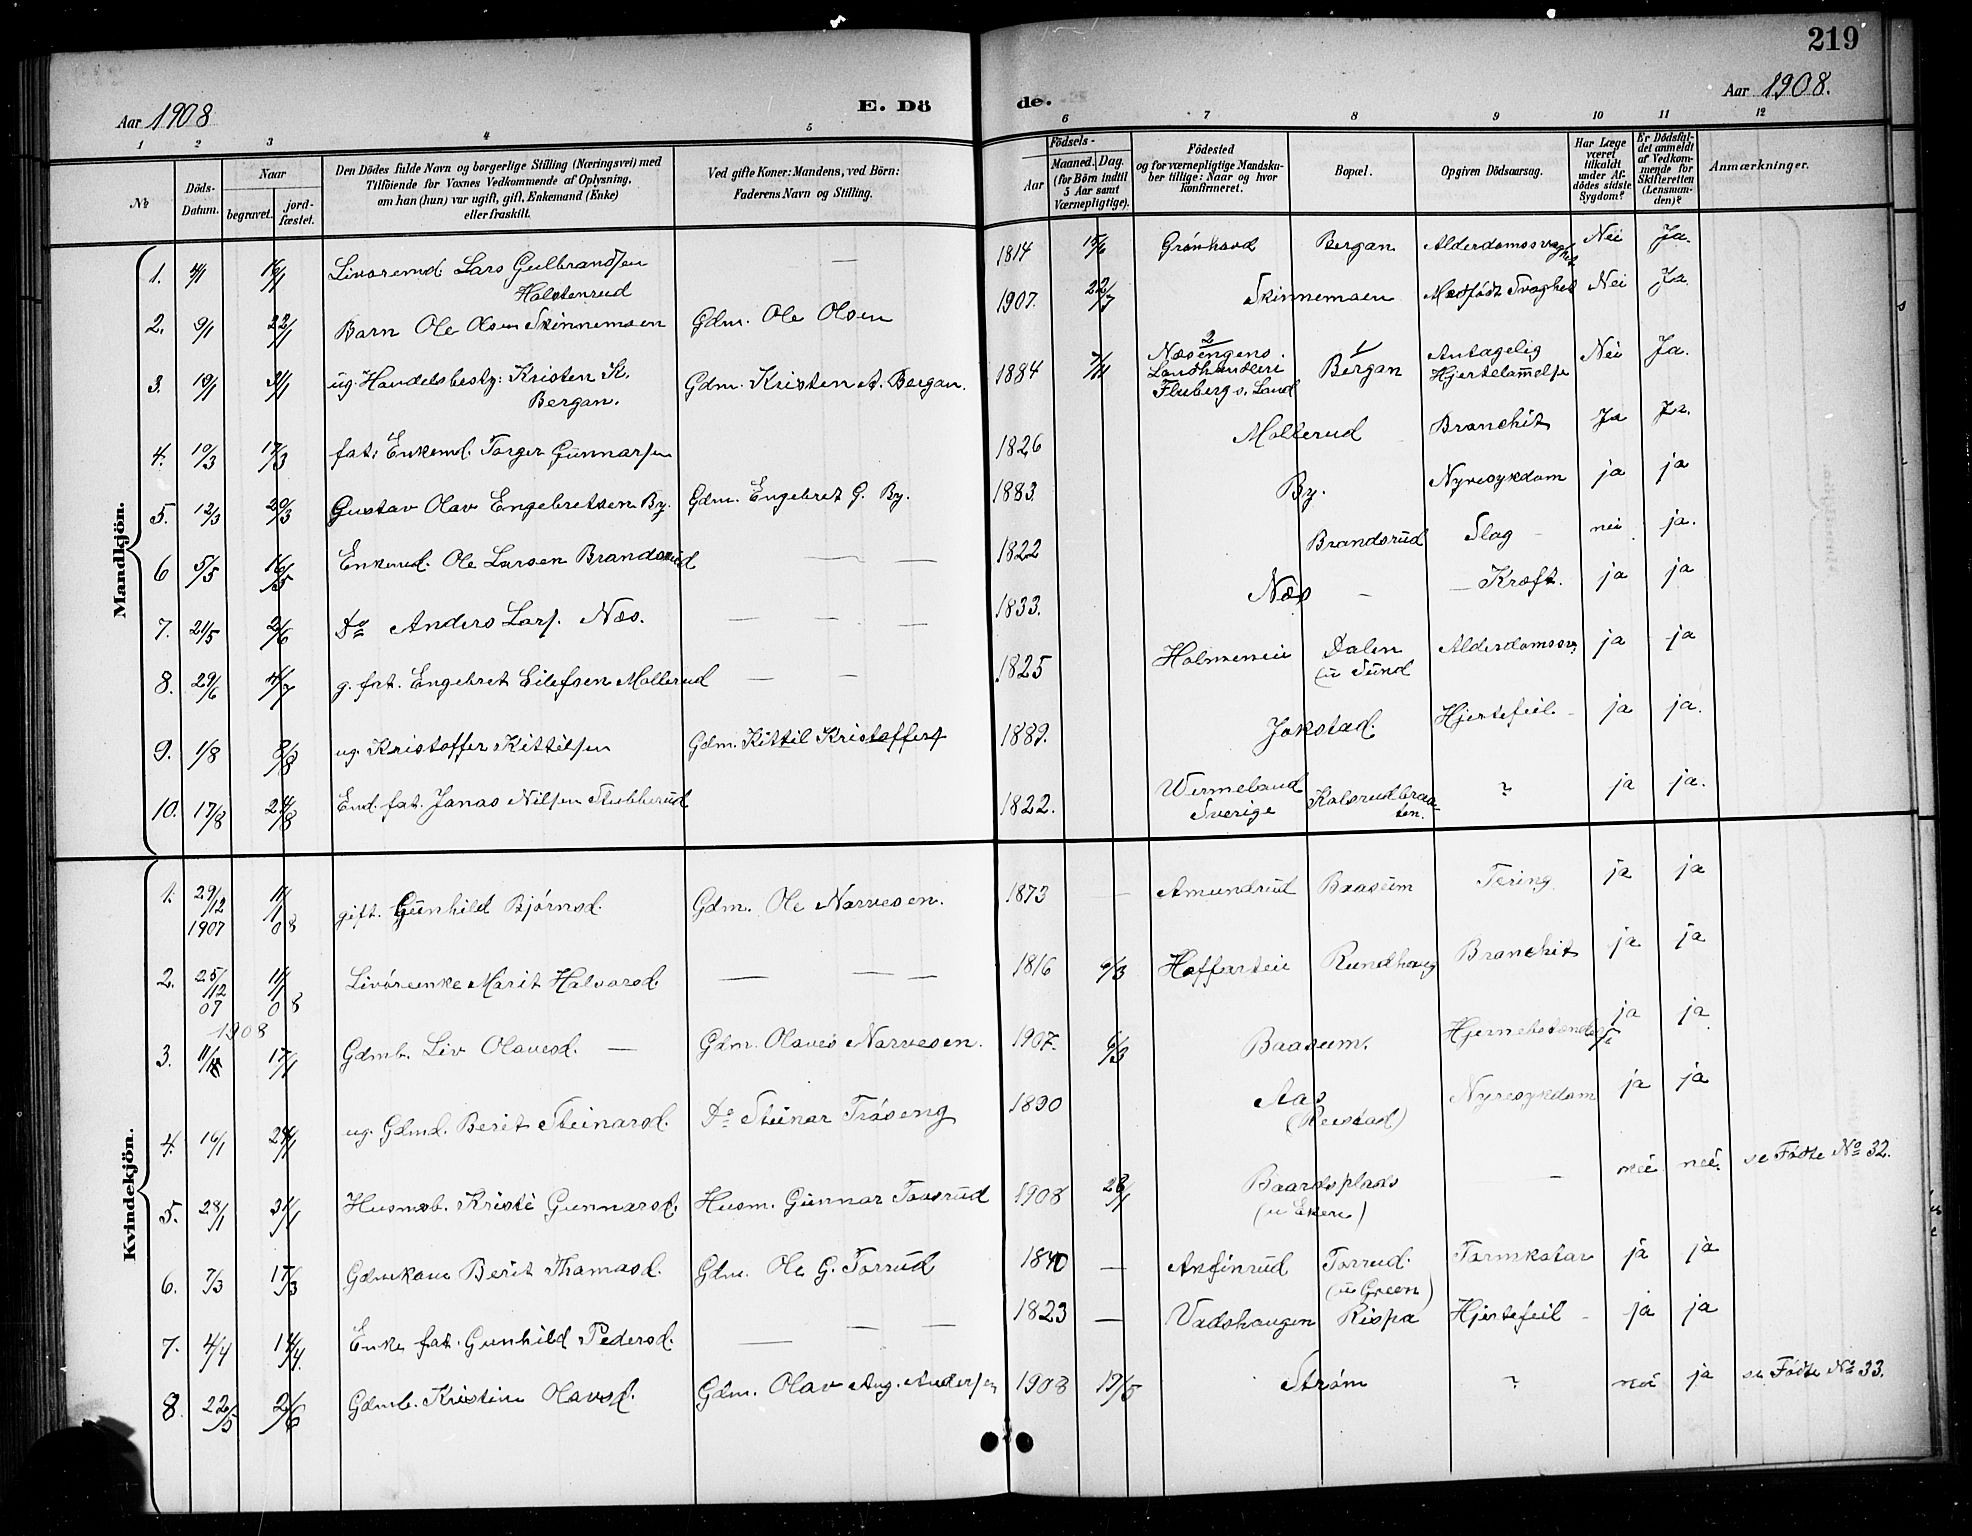 219
Aar 1908
E. Dö de.
Aar 1908.
1 2 3 4 5 6 7 8 9 10 11 12
№
Döds-
Datum.
Naar
begravet.
jord-
fæstet.
Den Dödes fulde Navn og borgerlige Stilling (Næringsvei) med
Tilföiende for Voxnes Vedkommende af Oplysning,
om han (hun) var ugift, gift, Enkemand (Enke)
eller fraskilt.
Ved gifte Koner: Mandens, ved Börn:
Faderens Navn og Stilling.
Födsels-
Aar
Maaned. Dag.
(for Börn indtil
5 Aar samt
Værnepligtige).
Födested
og for værnepligtige Mandsku-
ber tillige: Naar og hvor
konfirmeret.
Bopæl.
Opgiven Dödsaarsag.
Har Læge
været
tilkaldt
under Af-
dödes sidste
Sygdom?
Er Dödsful-
det anmeldt
af Vedkom-
mende for
Skifteretten
(Lensman-
den)?
Anmærkninger.
Mandkjön.
1. 4/1 16/1 Livøremd Lars Gulbrandsen
Halstenrud — 1814 15/6 Grønhovd Bergan Alderdomssvaghet Nei Ja.
2. 9/1 22/1 Barn Ole Olsen Skinnemoen Gdm. Ole Olsen 1907. 22/7 Skinnemoen Medfødt Svaghed Nei Ja.
3. 19/1 31/1 ug. Handelsbesty: Kristen K.
Bergan. Gdm. Kristen A. Bergan. 1884 7/11 Næsengens
Landhandleri
Fluberg s. Land Bergan Antagelig
Hjertelammelse Nei Ja.
4. 10/3 17/3 fat. Enkemd. Torger Gunnarsen 1826 Mollerud Bronchit Ja Ja.
5. 12/3 20/3 Gustav Olav Engebretsen By. Gdm. Engebret G. By. 1883. By. Nyresykdom ja ja
6 5/5 16/5 Enkemd. Ole Larsen Brandsrud — — 1822 Brandsrud Slag - nei ja.
7. 21/5 2/6 Do Anders Lars. Næs. — — — 1833. Næs - — Kræft. ja ja
8. 29/6 4/7 g. fat. Engebret Eilefsen Mollerud — — 1825 Holmeneie Dalen
(u Sund Alderdomssv. ja ja
9. 1/8 8/8 ug. Kristoffer Kittilsen Gdm. Kittil Kristoffers 1889. Jokstad. Hjertefeil - ja ja.
10. 17/8 24/8 Emd. fat. Jonas Nilsen Stubberud 1822. Wermeland
Sverige Kolsrudbraa-
ten. ? ja ja.
Kvindekjön.
1. 29/12
1907 11/1
08 gift. Gunhild Bjørnsd. Gdm. Ole Narvesen. 1873 — Amundrud Baaseum Tering ja ja
2. 25/12
07 11/1
08 Livøreenke Marit Halvorsd. — — — 1816 9/3 Hoffarteie Rundhaug Bronchit ja ja
1908
3. 11/1 17/1 Gdmb. Liv Olavesd. — Gdm. Olaves Narvesen. 1907. 6/3 Baaseum. Hjernebetændelse ja ja
4. 16/1 24/1 ug. Gdmd. Berit Steinarsd. Do Steinar Trøseng 1890 Aas
(Reistad) Nyresykdom ja ja
5. 28/1 31/1 Husmb. Kristi Gunnarsd. Husm. Gunnar Toosrud 1908 28/1 Baardsplads
(u Ekern) — nei nei. se Fødte No 32.
6. 7/3 15/3 Gdmkone Berit Thomasd. Gdm. Ole G. Torrud 1840 — Anfinrud Torrud.
(u Green) Tarmkatar ja ja
7. 4/4 14/4. Enke fat. Gunhild Pedersd. — — — 1823 — Vadshaugen Rispa Hjertefeil - ja ja
8. 22/5 2/6 Gdmb. Kristine Olavsd. Gdm. Olav Aug. Andersen 1908 19/5 Strøm ? nei ja se Fødte No 33.